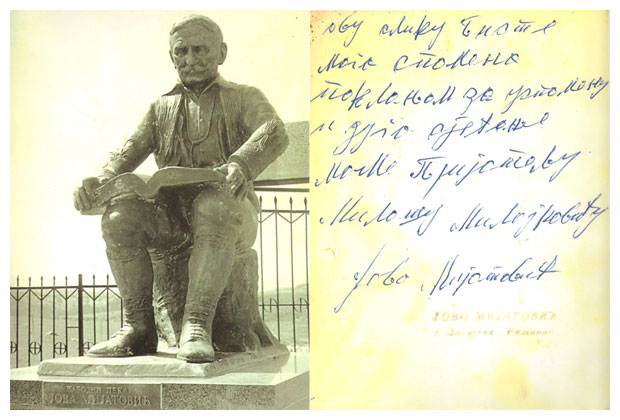 НАРОДНИ ПЕВАЧ
ЈОВА МИЈАТОВИЋ
ову слику бисте
мога спомена
поклањам за успомену
и дуго сјећање
моме Пријатељу
Милошу Милојковићу
Јово Мијатовић
ЈОВО МИЈАТОВИЋ